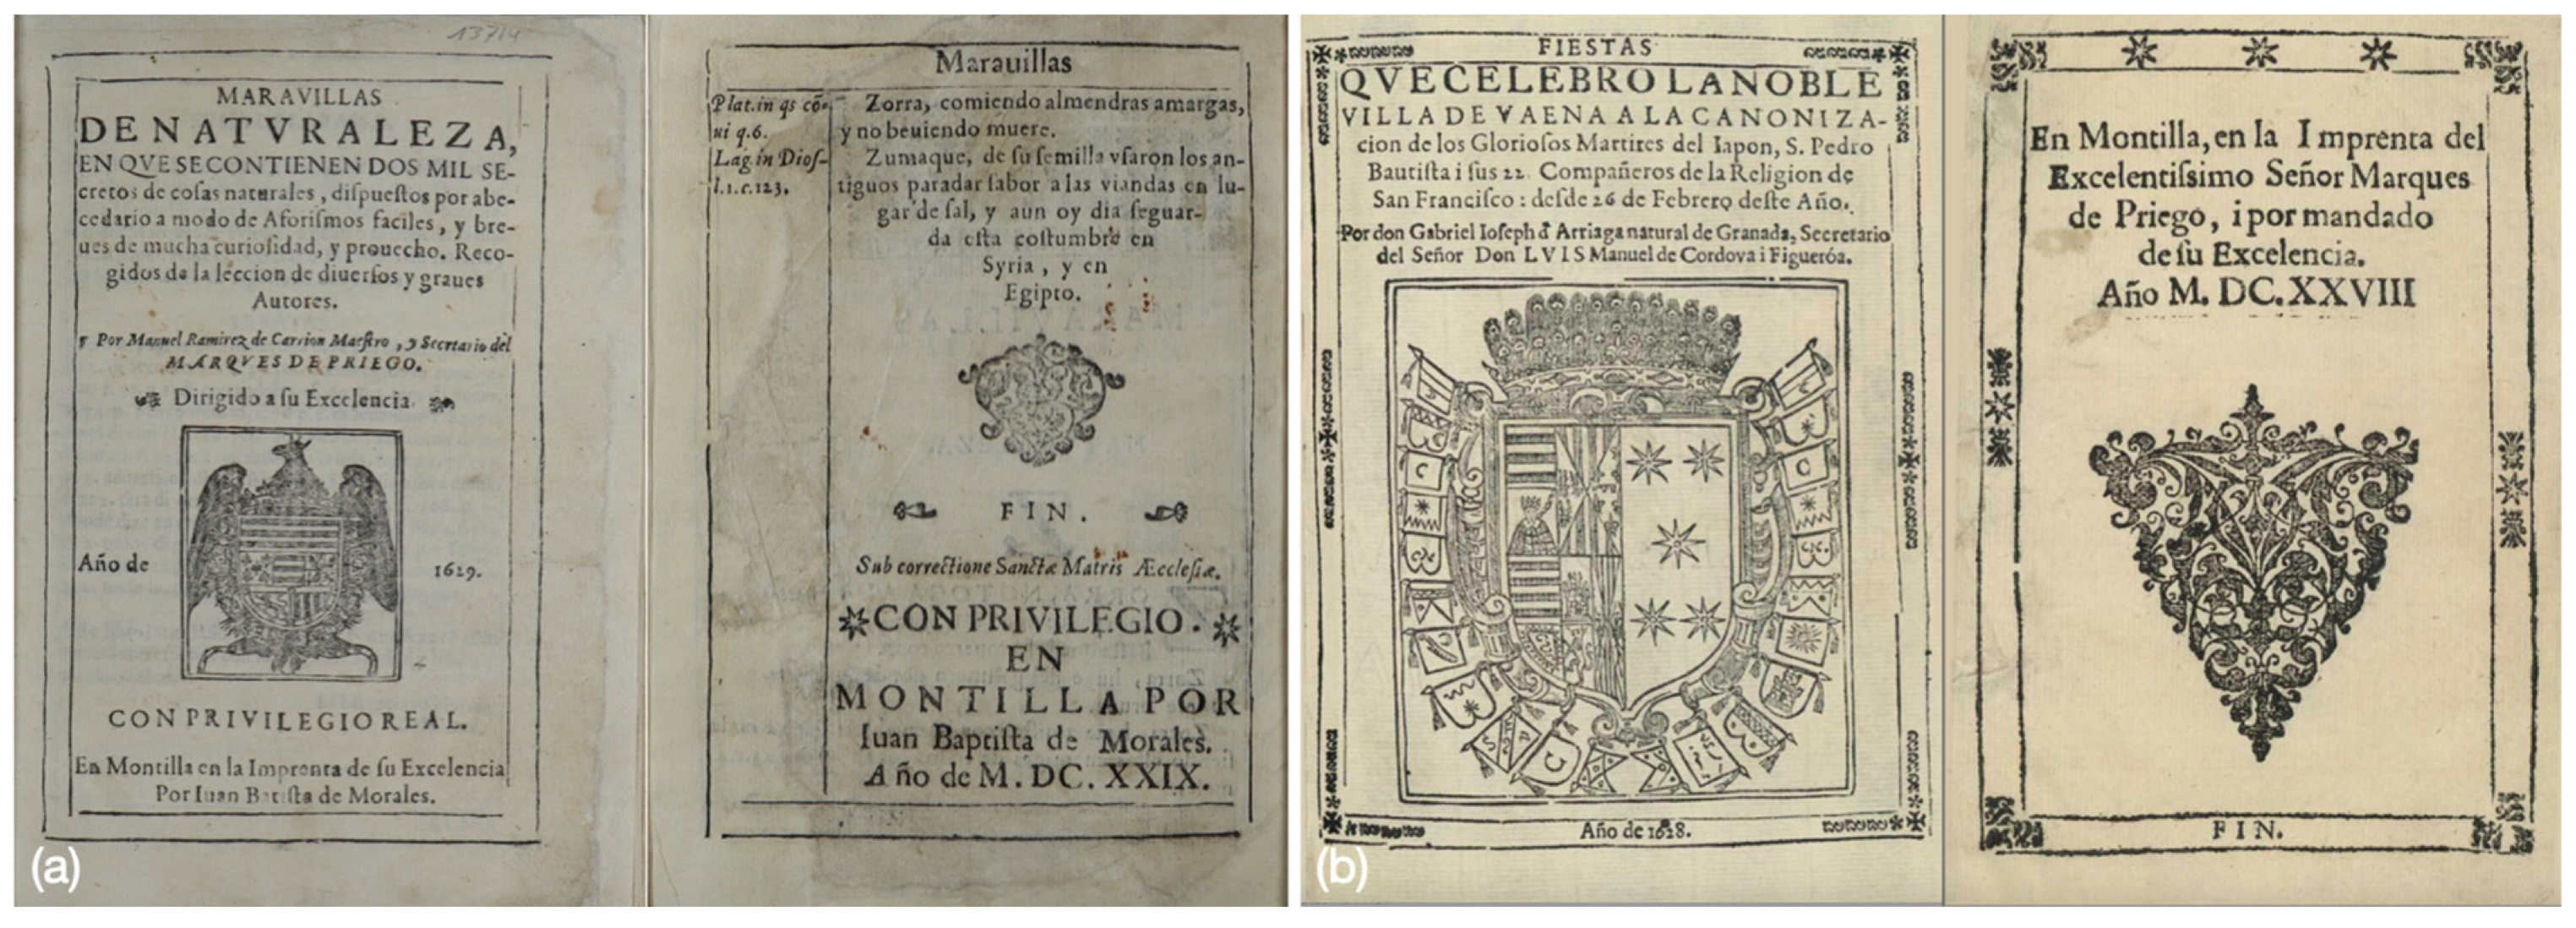 13714
MARAVILLAS
DE NATVRALEZA,
EN QVE SE CONTIENEN DOS MIL SE-
cretos de coſas naturales, diſpueſtos por abe-
cedario a modo de Aforiſmos faciles, y bre-
ues de mucha curioſidad, y prouecho. Reco-
gidos de la leccion de diuerſos y graues
Autores.
Por Manuel Ramirez de Carrion Maeſtro, y Secretario del
MARQVES DE PRIEGO.
Dirigido a ſu Excelencia.
Año de 1629.
CON PRIVILEGIO REAL.
En Montilla en la Imprenta de ſu Excelencia
Por Iuan Batiſta de Morales.
(a)
Marauillas
Plat. in qs cõ-
ui q.6.
Lag. in Dioſ-
l.1.c.123.
Zorra, comiendo almendras amargas,
y no beuiendo muere.
Zumaque, de ſu ſemilla vſaron los an-
tiguos para dar ſabor a las viandas en lu-
gar de ſal, y aun oy dia ſe guar-
da eſta coſtumbre en
Syria, y en
Egipto.
FIN.
Sub correctione Sanctæ Matris Æccleſiæ.
CON PRIVILEGIO.
EN
MONTILLA POR
Iuan Baptiſta de Morales.
Año de M. DC. XXIX.
FIESTAS
QVE CELEBRO LA NOBLE
VILLA DE VAENA A LA CANONIZA-
cion de los Glorioſos Martires del Iapon, S. Pedro
Bautiſta i ſus 22. Compañeros de la Religion de
San Franciſco: deſde 26 de Febrero deſte Año.
Por don Gabriel Ioſeph đ Arriaga natural de Granada, Secretario
del Señor Don LVIS Manuel de Cordova i Figueróa.
Año de 1628.
(b)
En Montilla, en la Imprenta del
Excelentiſsimo Señor Marques
de Priego, i por mandado
de ſu Excelencia.
Año M. DC. XXVIII
FIN.